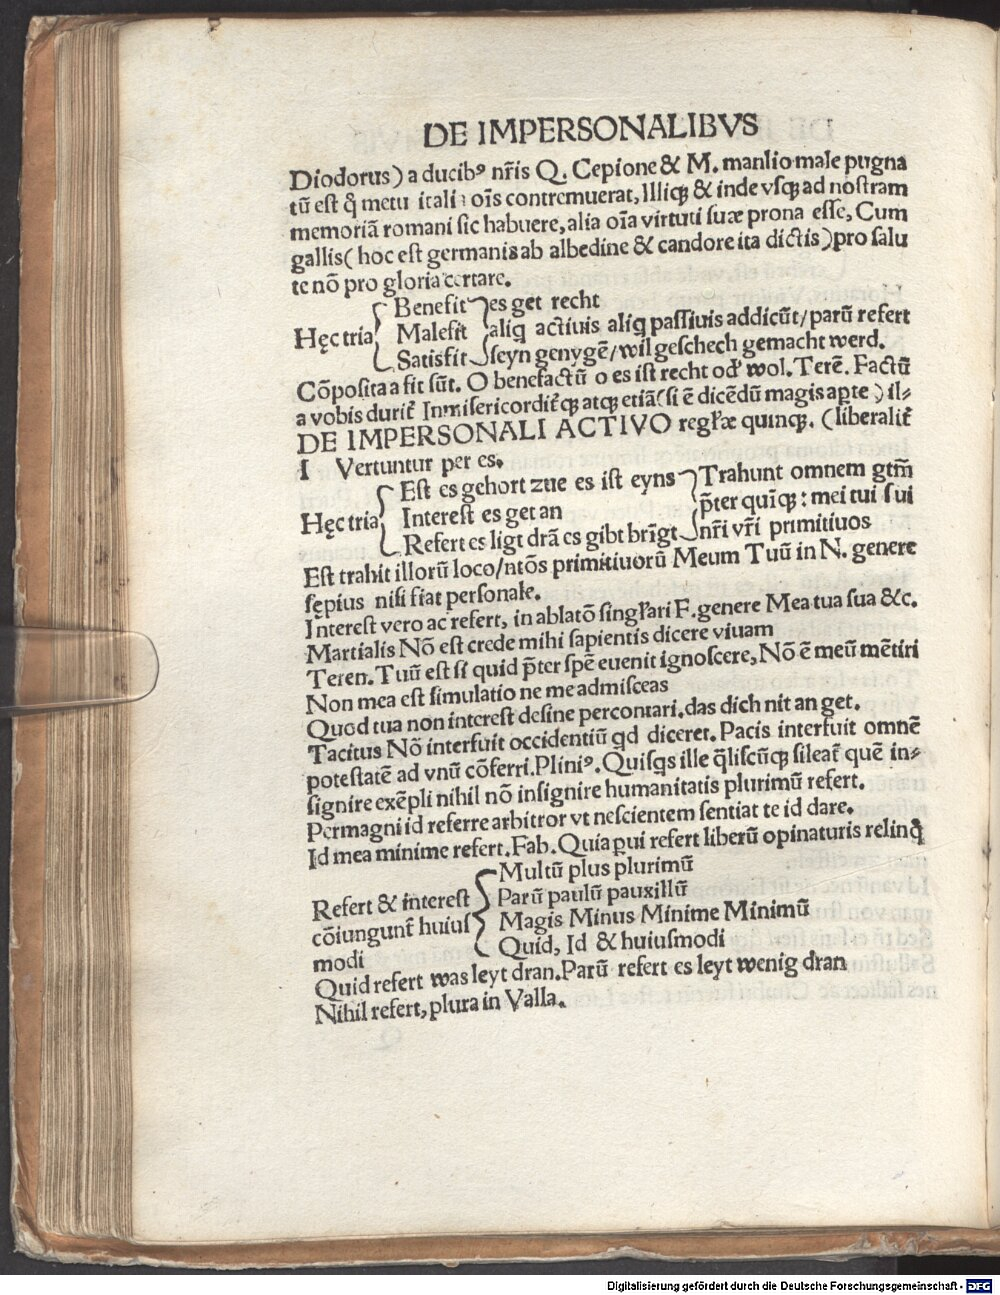 DE IMPERSONALIBVS
Diodorus) a ducibꝰ nr̃is Q. Cepione & M. manlio male pugna
tũ est q̃ metu itali oĩs contremuerat, Illicꝗ & inde vsꝗ ad nostram
memoriã romani sic habuere, alia oĩa virtuti suæ prona esse, Cum
gallis( hoc est germanis ab albedine & candore ita dictis )pro salu
te nõ pro gloria certare.
Benefit es get recht
Hęc tria Malefit aliq̃ actiuis aliq̃ passiuis addicũt/parũ refert
Satisfit seyn genygẽ/wil geschech gemacht werd.
Cõposita a fit sũt. O benefactũ o es ist recht od' wol. Terẽ. Factũ
a vobis durit̃ Inmisericordit̃ꝗ atꝗ etiã( si ẽ dicẽdũ magis aperte ) il-
DE IMPERSONALI ACTIVO regl̃æ quinꝗ. (liberalit̃
I Vertuntur per es.
Est es gehort zue es ist eyns Trahunt omnem gtm̃
Hęc tria Interest es get an p̃ter quĩꝗ : mei tui sui
Refert es ligt drã es gibt brĩgt nr̃i vr̃i primitiuos
Est trahit illorũ loco/ntõs primitiuorũ Meum Tuũ in N. genere
sepius nisi fiat personale.
Interest vero ac refert, in ablatõ singl̃ari F. genere Mea tua sua &c.
Martialis Nõ est crede mihi sapientis dicere viuam
Teren. Tuũ est si quid p̃ter spẽ euenit ignoscere, Nõ ẽ meũ mẽtiri
Non mea est simulatio ne me admisceas
Quod tua non interest desine percontari. das dich nit an get.
Tacitus Nõ interfuit occidentiũ qd diceret. Pacis interfuit omnẽ
potestatẽ ad vnũ cõferri. Pliniꝰ. Quisq̃s ille q̃liscũꝗ sileat̃ quẽ in-
signire exẽpli nihil nõ insignire humanitatis plurimũ refert.
Permagni id referre arbitror vt nescientem sentiat te id dare.
Id mea minime refert. Fab. Quia ꝑui refert liberũ opinaturis relinq̃
Multũ plus plurimũ
Refert & interest Parũ paulũ pauxillũ
cõiungunt̃ huius Magis Minus Minime Minimũ
modi Quid, Id & huiusmodi
Quid refert was leyt dran. Parũ refert es leyt wenig dran
Nihil refert, plura in Valla.
Digitalisierung gefördert durch die Deutsche Forschungsgemeinschaft - DFG